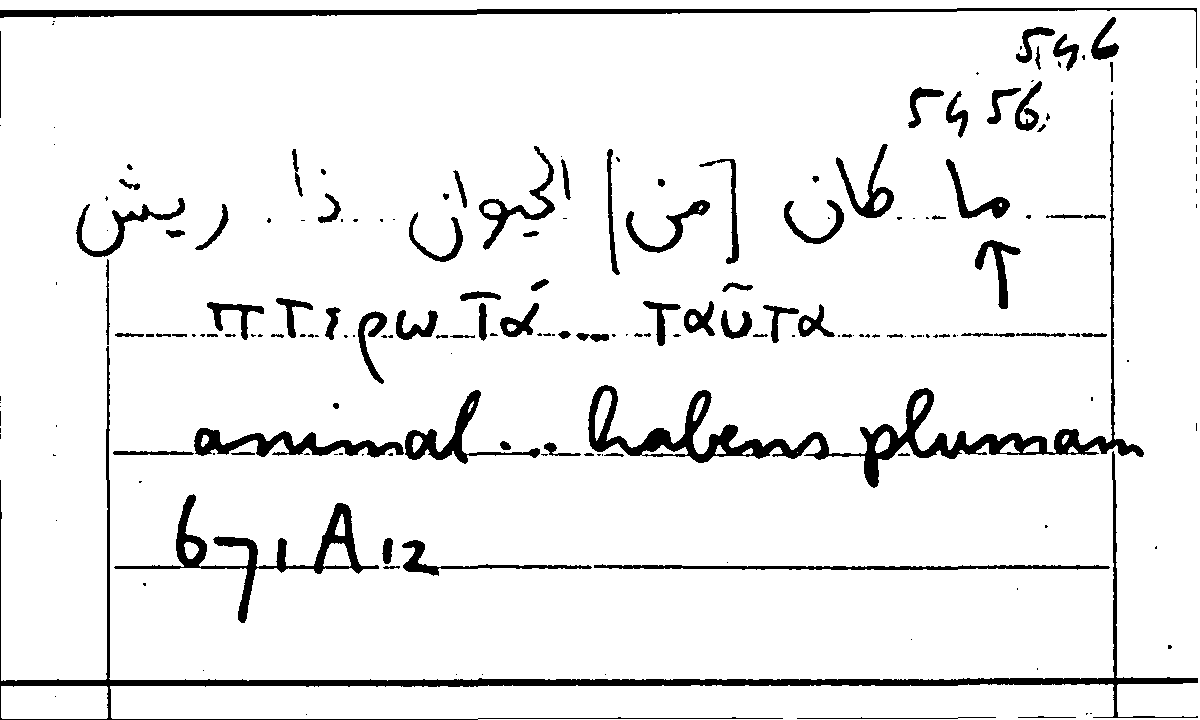 54.6
5456
ما كان [من] الحيوان ذا ريش
↑
πτερωτά... ταῦτα
animal... habens plumam
671A12